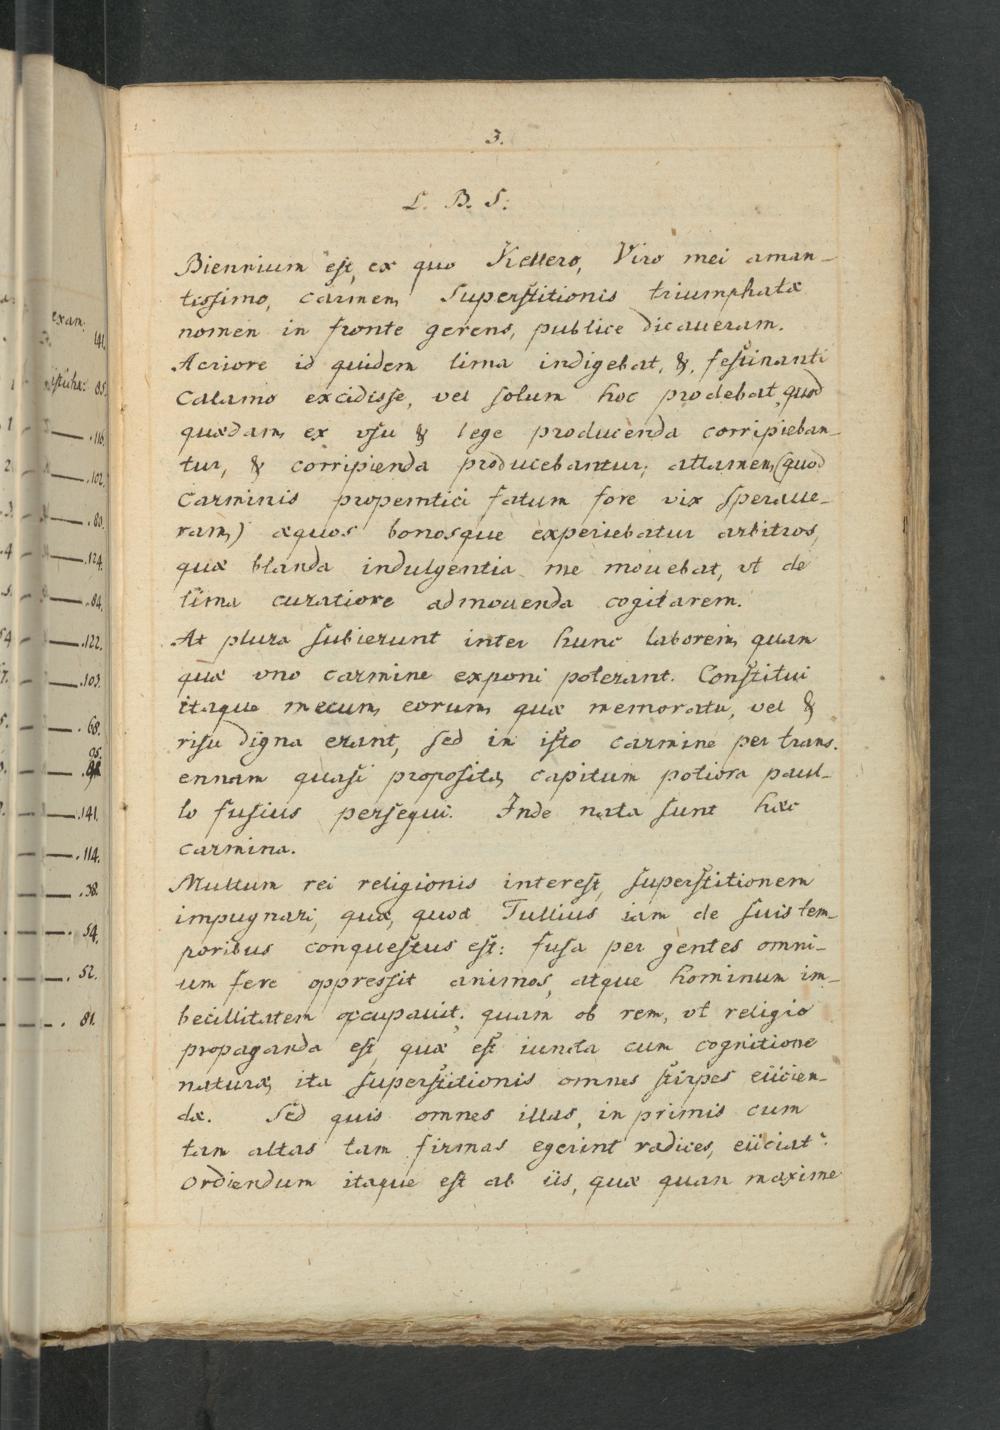 3.
L. B. S.
Biennium est, ex quo Kellero, Viro mei aman-
tissimo, carmen, Superstitionis triumphatæ
nomen in fronte gerens, publice dicaueram.
Acriore id quidem lima indigebat, &, festinanti
calamo excidisse, vel solum hoc prodebat, quod
quædam, ex vsu & lege producenda corripieban-
tur, & corripienda producebantur; attamen, (quod
carminis propemtici fatum fore vix speraue-
ram,) æquos bonosque experiebatur arbitros,
quæ blanda indulgentia me mouebat, vt de
lima curatiore admouenda cogitarem.
At plura subierunt inter hunc laborem, quam
quæ vno carmine exponi poterant. Constitui
itaque mecum, eorum, quæ memoratu, vel &
risu digna erant, sed in isto carmine per trans-
ennam quasi proposita, capitum potiora paul-
lo fusius persequi. Inde nata sunt hæc
carmina.
Multum rei religionis interest, superstitionem
impugnari, quæ, quod Tullius iam de suis tem-
poribus conquestus est: fusa per gentes omni-
um fere oppressit animos, atque hominum im-
becillitatem occupauit; quam ob rem, vt religio
propaganda est, quæ est iuncta cum cognitione
naturæ, ita superstitionis omnes stirpes eiicien-
dæ. Sed quis omnes illas, in primis cum
tam altas tam firmas egerint radices, eiiciat?
Ordiendum itaque est ab iis, quæ quam maxime
exam.
141.
85.
.116.
.102.
.80.
.124.
.84.
.122.
.103.
. 68.
95.
.141.
. 114.
. 38.
. 54.
. 52.
. 81.